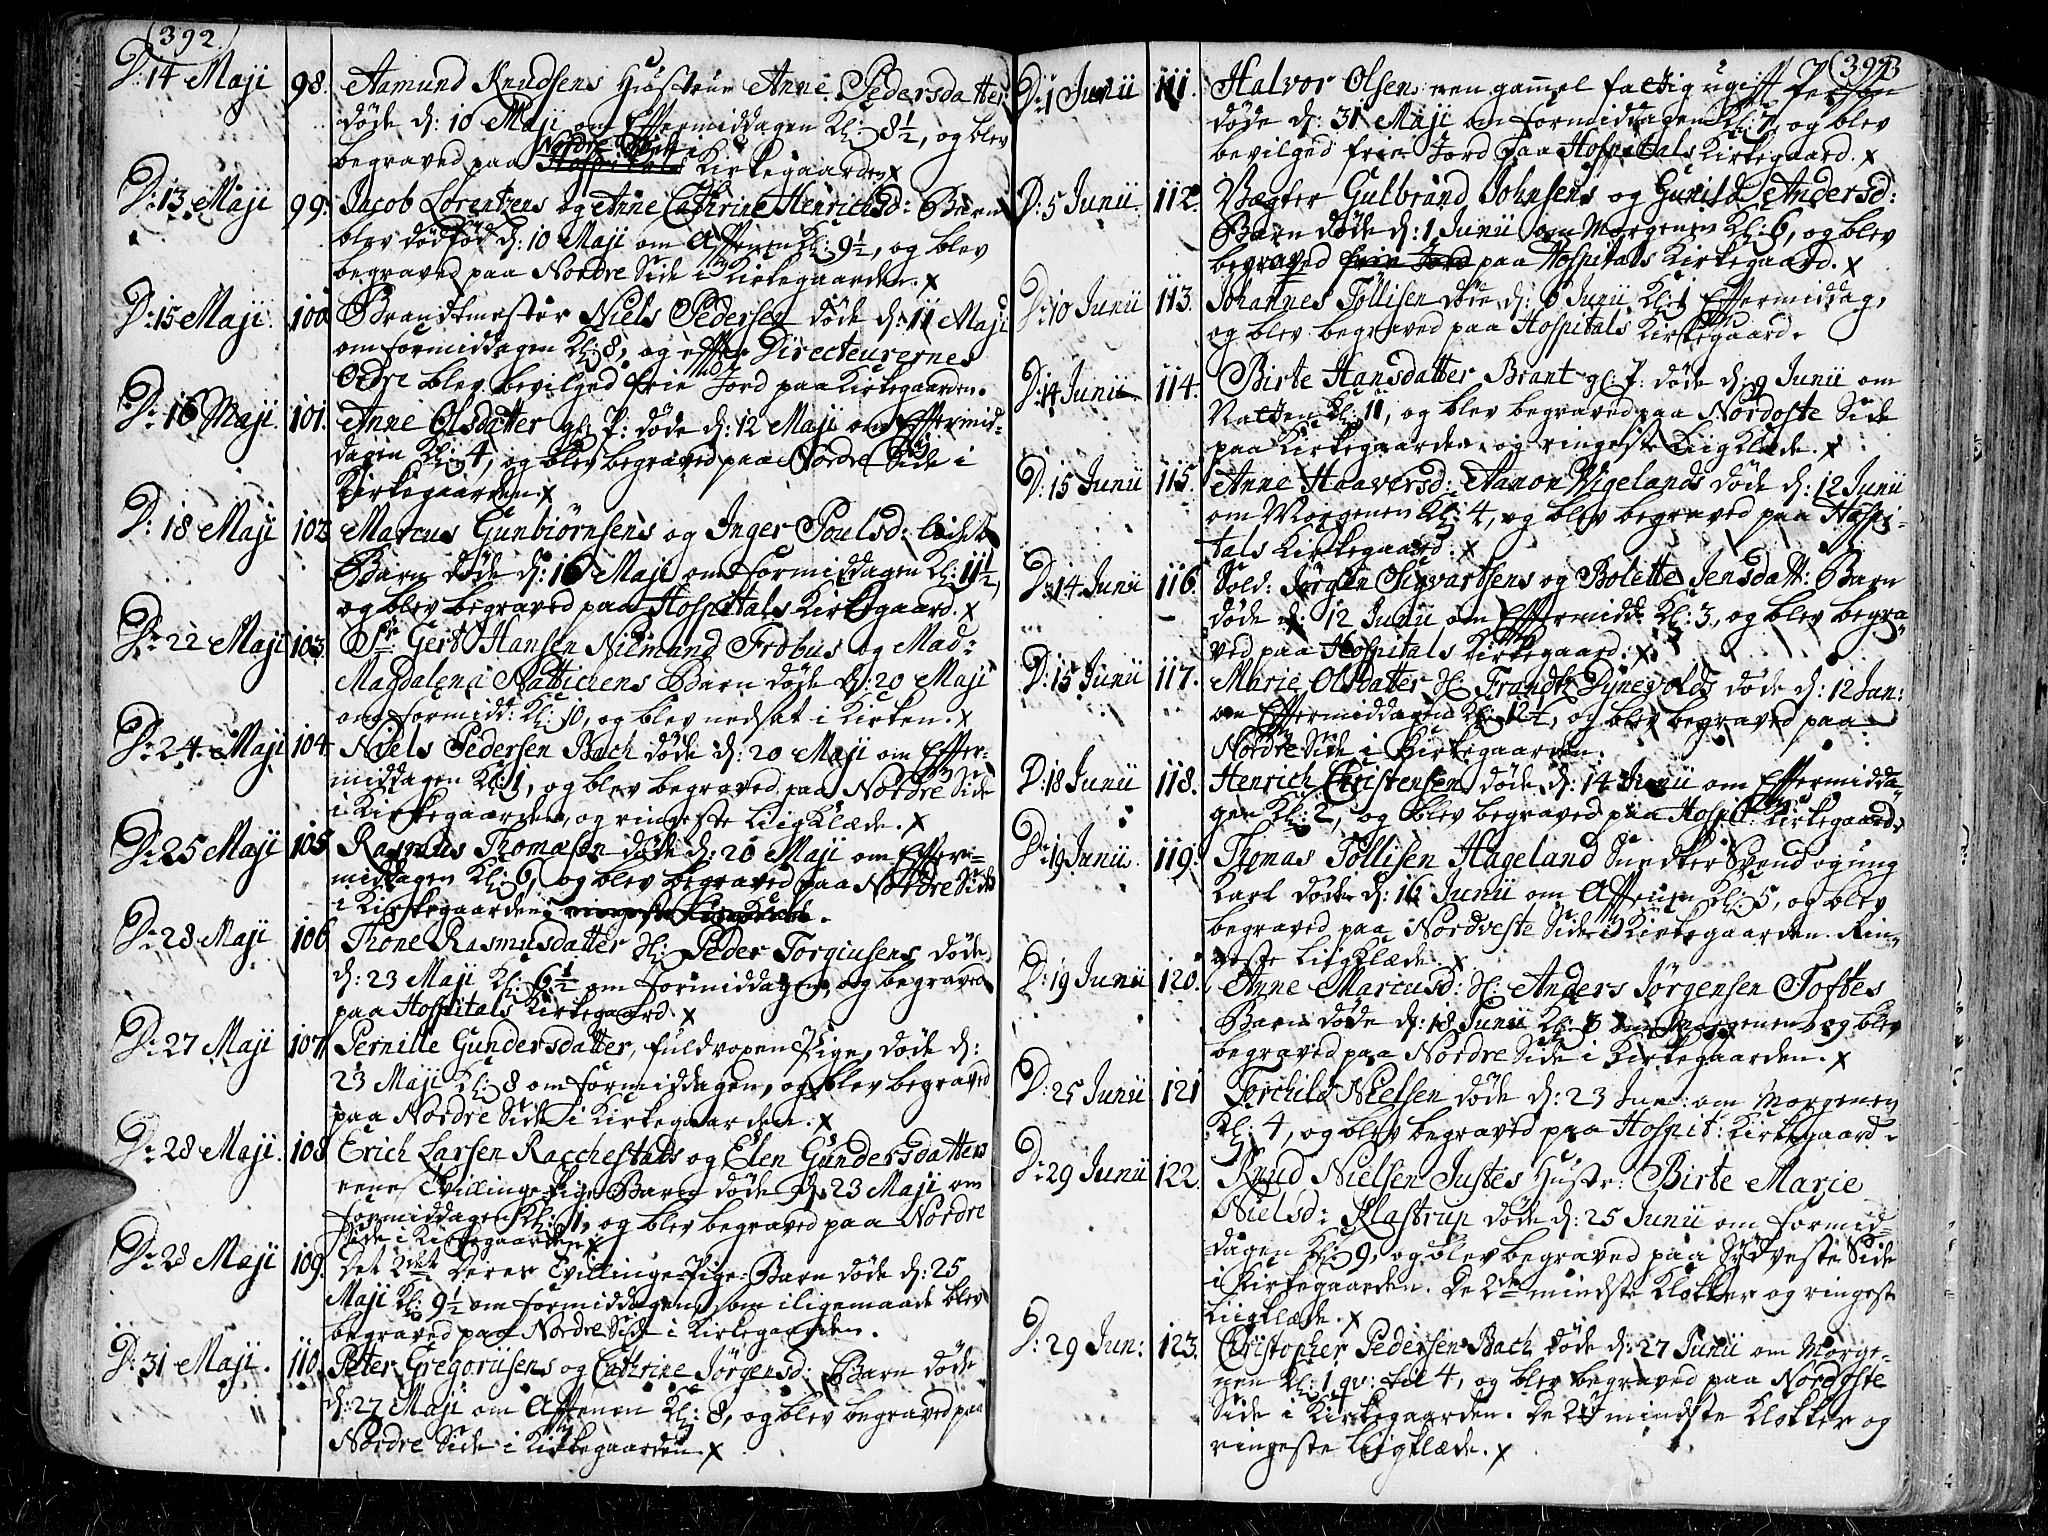 (392.)
D: 14 Maji 98. Aamund Knudsens Hustrue Anne Pedersdatter
døde d: 10 Maji om Efftermiddagen Kl: 8½, og blev
begraved paa Nordre Side i Kirkegaarden X
D: 13 Maji 99. Jacob Lorentzens og Anne Cathrine Henrichsd: Barn
blev dødfød d: 10 Maji om Afftenen Kl: 9½, og blev
begraved paa Nordre Side i Kirkegaarden. X
D: 15 Maji. 100 Brandtmester Niels Pedersen døde d: 11 Maji
om formiddagen Kl: 8, og effter Directeurernes
Ordre blev bevilged frie Jord paa Kirkegaarden.
D: 16 Maji. 101. Anne Olsdatter gl: P: døde d: 12 Maji om Efftermid-
dagen Kl: 4, og blev begraved paa Nordre Side i
Kirkegaarden. X
D: 18 Maji 102 Marcus Gunbiørnsens og Inger Poulsd: lidet
Barn døde d: 16 Maji om formiddagen Kl: 11½,
og blev begraved paa Hospitals Kirkegaard. X
D: 22 Maji 103. Sr: Gert Hansen Niemand Frobus og Mad:
Magdalena Barn døde d: 20 Maji
om formidd: Kl: 10, og blev nedsat i Kirken. X
D: 24 Maji 104. Niels Pedersen Bach døde d: 20 Maji om Effter-
middagen Kl: 1, og blev begraved paa Nordre Side
i Kirkegaarden, og ringeste Liigklæde. X
D: 25 Maji 105 Rasmus Thomasen døde d: 20 Maji om Effter-
middagen Kl: 6, og blev begraved paa Nordre Side
i Kirkegaarden, ringeste Liigklæde.
D: 28 Maji 106 Thone Rasmusdatter Sl: Peder Torgiusens døde
d: 23 Maji Kl: 6½ om formiddagen, og begraved
paa Hospitals Kirkegaard. X
D: 27 Maji 107. Pernille Gundersdatter, fuldvoxen Pige, døde d:
23 Maji Kl: 8 om formiddagen, og blev begraved
paa Nordre Side i Kirkegaarden. X
D: 28 Maji. 108 Erich Larsen Racchestads og Elen Gundersdatters
eene Tvillinge-Pige-Barn døde d: 23 Maji om
formiddagen Kl: 11, og blev begraved paa Nordre
Side i Kirkegaarden X
D: 28 Maji 109. Det 2det Deres Tvillinge-Pige-Barn døde d: 25
Maji Kl: 9½ om formiddagen, som iligemaade blev
begraved paa Nordre Side i Kirkegaarden.
D: 31 Maji. 110. Petter Gregoriisens og Cathrine Jørgensd: Barn døde
d: 27 Maji om Afftenen Kl: 8, og blev begraved paa
Nordre Side i Kirkegaarden. X
(393
D: 1 Junii 111. Halvor Olsen: een gammel fattig ugifft Person
døde d: 31 Maji om formiddagen Kl: 7, og blev
bevilged frie Jord paa Hospitals Kirkegaard. X
D: 5 Junii 112. Vægter Gulbrand Johnsens og Gunild Andersd:
Barn døde d: 1 Junii om Morgenen Kl: 6, og blev
begraved frie Jord paa Hospitals Kirkegaard. X
D: 10 Junii 113. Johannes Tøllisen døde d: 6 Junii Kl: 1 Efftermiddag,
og blev begraved paa Hospitals Kirkegaard.
D: 14 Junii 114. Birte Hansdatter Brant gl: P: døde d: 9 Junii om
Natten Kl: 11, og blev begraved paa Nordoste Side
paa Kirkegaarden, og ringeste Liigklæde. X
D: 15 Junii 115. Anne Haaversd: Aanon Vigelands døde d: 12 Junii
om Morgenen Kl: 4, og blev begraved paa Hospi-
tals Kirkegaard. X
D: 14 Junii 116. Sold: Jørgen Sigvartsens og Bolette Jensdatt: Barn
døde d: 12 Junii om Efftermidd: Kl: 3, og blev begra-
ved paa Hospitals Kirkegaard. X
D: 15 Junii 117. Marie Olsdatter Sl: Frandtz Dynevolds døde d: 12 Jun:
om Efftermiddagen Kl: 12½, og blev begraved paa
Nordre Side i Kirkegaarden.
D: 18 Junii 118. Henrich Christensen døde d: 14 Junii om Efftermidda-
gen Kl: 2, og blev begraved paa Hospit: Kirkegaard.
D: 19 Junii. 119. Thomas Tøllisen Hageland Snedker Svend og ung
Karl døde d: 16 Junii om Afftenen Kl: 5, og blev
begraved paa Nordveste Side i Kirkegaarden. Rin-
geste Liigklæde. X
D: 19 Junii 120. Anne Marcusd: Sl: Anders Jørgensen Tofftes
Barn døde d: 18 Junii Kl: 6 om Morgenen, og blev
begraved paa Nordre Side i Kirkegaarden. X
D: 25 Junii 121 Torchild Nielsen døde d: 23 Jun: om Morgenen
Kl: 4, og blev begraved paa Hospit: Kirkegaard.
D: 29 Junii 122. Knud Nielsen Justes Hustr: Birte Marie
Nielsd: Klastrup døde d: 25 Junii om formid-
dagen Kl: 9, og blev begraved paa Sydveste Side
i Kirkegaarden. De 2de mindste Klokker og ringeste
Liigklæde. X
D: 29 Jun: 123. Christopher Pedersen Bach døde d: 27 Junii om Morge-
nen Kl: 1 qv: til 4, og blev begraved paa Nordoste
Side i Kirkegaarden. De 2de mindste Klokker og
ringeste Liigklæde. X